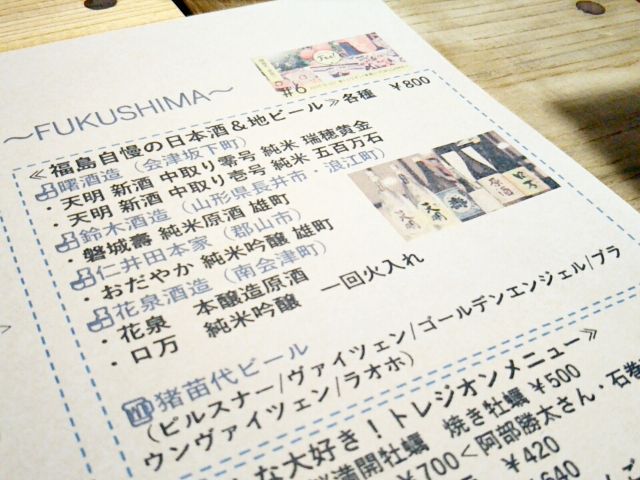 #6
～FUKUSHIMA～
≪福島自慢の日本酒＆地ビール≫各種 ￥800
曙酒造（会津坂下町）
・天明 新酒 中取り零号 純米 瑞穂黄金
・天明 新酒 中取り壱号 純米 五百万石
鈴木酒造（山形県長井市・浪江町）
・磐城壽 純米原酒 雄町
仁井田本家（郡山市）
・おだやか 純米吟醸 雄町
花泉酒造（南会津町）
・花泉 本醸造原酒 一回火入れ
・ロ万 純米吟醸
猪苗代ビール
（ピルスナー/ヴァイツェン/ゴールデンエンジェル/ブラ
ウンヴァイツェン/ラオホ）
な大好き！トレジオンメニュー≫
満開牡蠣 焼き牡蠣 ￥500
￥700＜阿部勝太さん・石巻
￥420
640